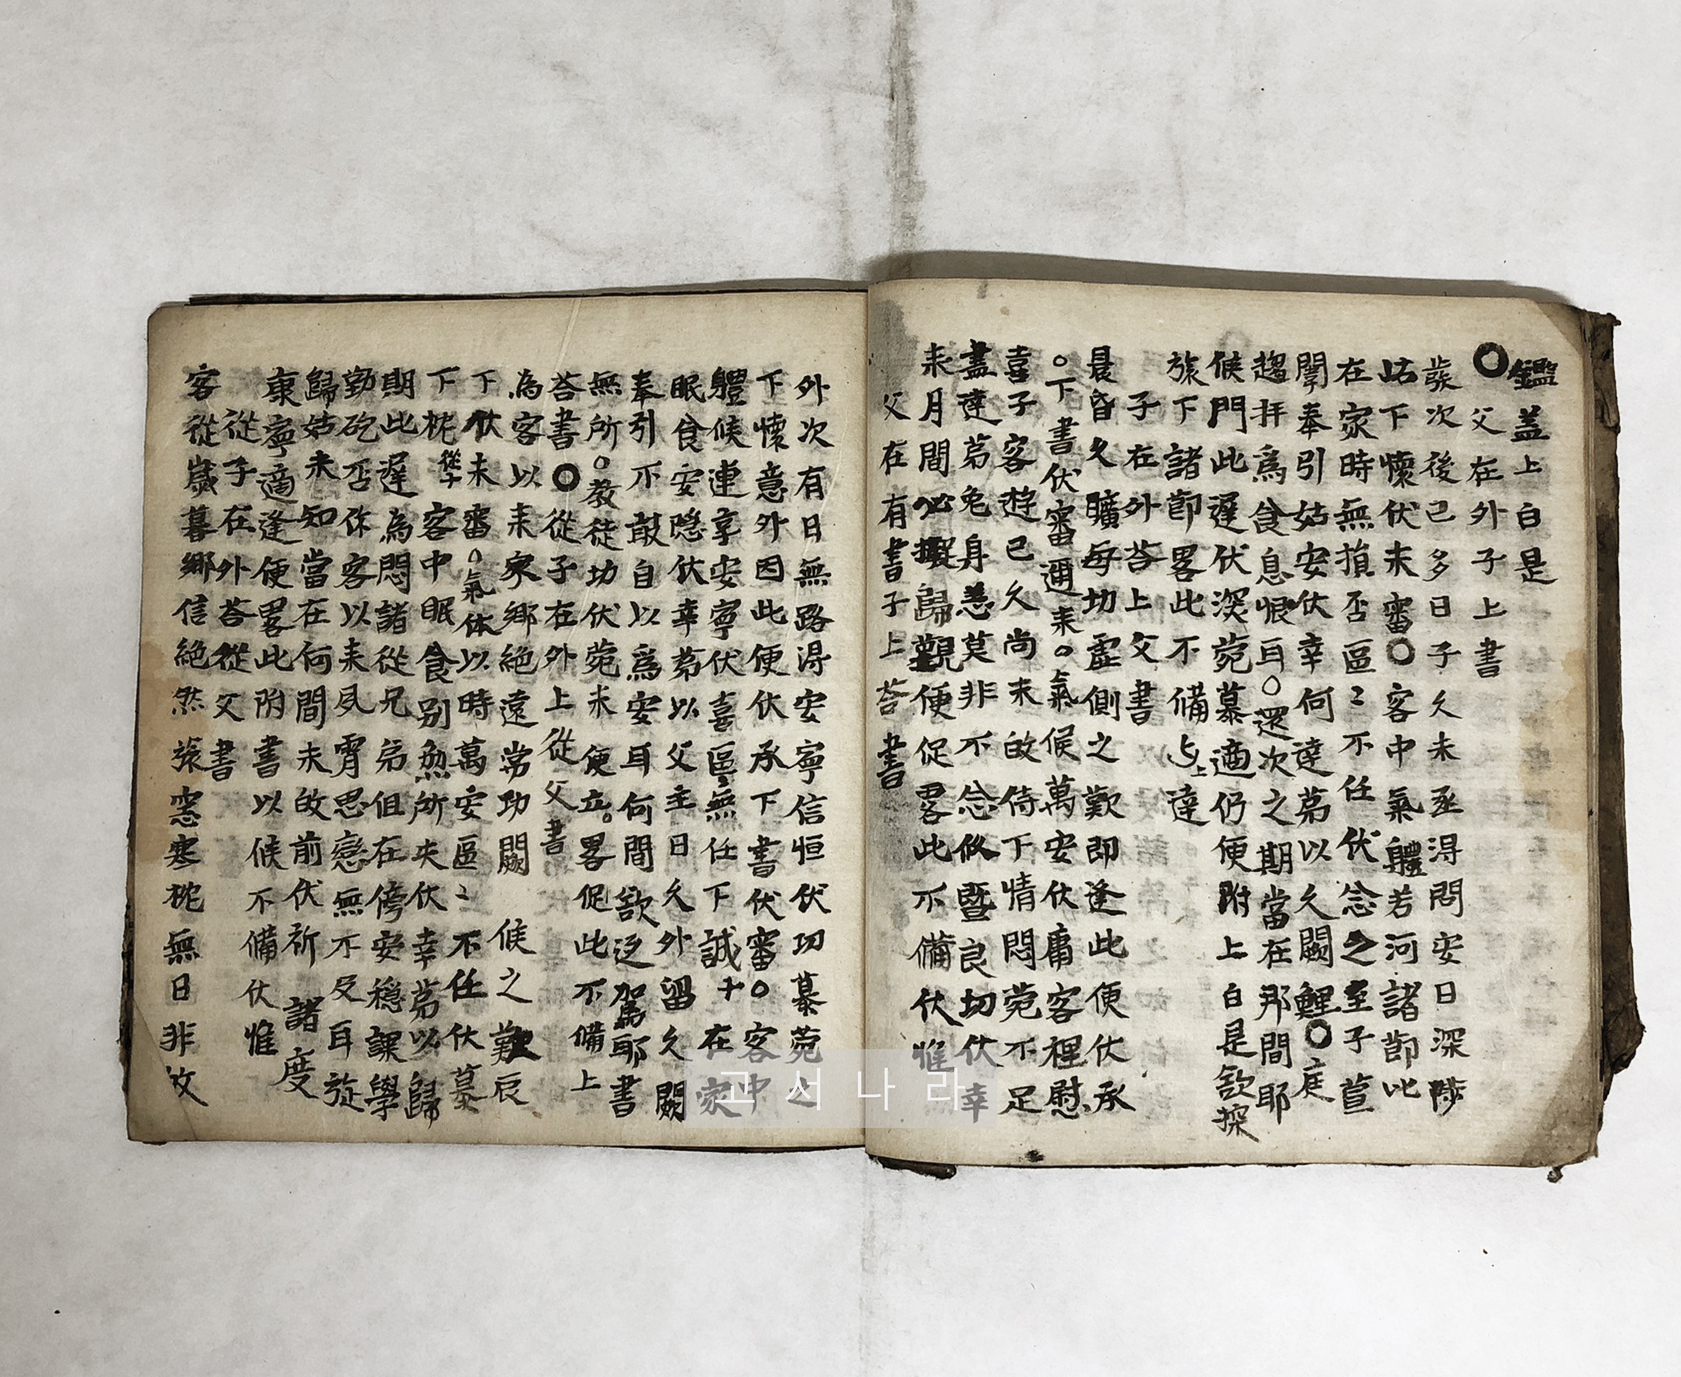 鑑盖上白是
○父在外子上書
發次後已多日子久未丞淂問安日深陟
岵下懷伏未審○客中氣體若河諸節此
在家時無損否區〻不任伏念之至子萱
闈奉引姑安伏幸何達苐以久闕鯉○庭
趨拜爲食息恨耳○還次之期當在那間耶
候門此遲伏深菀慕適仍便附上白是欲探
旅下諸節畧此不備上達
子在外荅上父書
晨昏久曠每功虛側之歎即逢此便伏承
○下書伏審邇来○氣候萬安伏庸客裡慰
喜子客遊已久尚未故侍下情悶菀不足
盡達苐免身恙莫非不念攸曁良切伏幸
来月間必擬歸覲便促畧此不備伏惟
父在有書子上荅書
外次有日無路淂安寧信恒伏功慕菀之
下懷意外因此便伏承下書伏審○客中
體候連享安寧伏喜區〻無任下誠十在家
眠食安隱伏幸苐以父主日久外留久闕
奉引不敢自以爲安耳何間欲返駕耶書
無所○教從功伏菀未便立○畧促此不備上
荅書○從子在外上從父書
為客以来家鄉絶遠常功闕候之難辰
下伏未審○氣体以時萬安區〻不任伏慕
下忱從子客中眠食别無所失伏幸苐以歸
期此遲為悶諸從兄弟俱在傍安穩課學
勤矻否你客以来夙霄思戀無不及耳旋
歸姑未知當在何間未故前伏祈諸度
康寧適逢便畧此附書以候不備伏惟
從子在外荅從父書
客從嵗暮鄉信絶㷊張窓寒枕無日非攸
고서나라